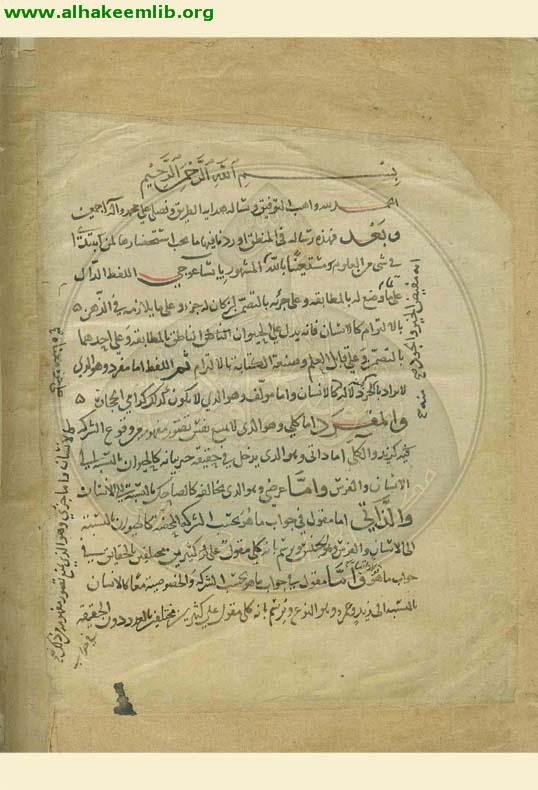 www.alhakeemlib.org
بسم الله الرحمن الرحيم
الحمد لله واهب التوفيق ونساله هداية الطريق ونصلي على محمد واله اجمعين
وبعد فهذه رسالة في المنطق اوردنا فيها ما يجب استحضارها لمن ابتدأ
في شئ من العلوم مستعينا بالله المشهور بايساغوجي اللفظ الدال
على ما وضع له بالمطابقة وعلى جزئه بالتضمن ان كان له جزء وعلى ما يلازمه في الذهن
بالالتزام كالانسان فانه يدل على الحيوان الناطق بالمطابقة وعلى احدهما
بالتضمن وعلى قابل العلم وصنعة الكتابة بالالتزام ثم اللفظ اما مفرد وهو الذي
كالانسان واما مؤلف وهو الذي لا يكون كذلك كرامي الحجارة
والمفرد اما كلي وهو الذي لا يمنع نفس تصور مفهومه من وقوع الشركة
فيه كزيد والكلي اما ذاتي وهو الذي يدخل في حقيقة جزئياته كالحيوان بالنسبة الى
الانسان والفرس واما عرضي وهو الذي يخالفه كالضاحك بالنسبة الى الانسان
والذاتي اما مقول في جواب ما هو بحسب الشركة المحضة كالحيوان بالنسبة
الى الانسان والفرس وهو الجنس ويرسم بانه كلي مقول على كثيرين مختلفين بالحقايق في
جواب ما هو واما مقول في جواب ما هو بحسب الشركة والخصوصية معا كالانسان
بالنسبة الى زيد وعمرو وهو النوع ويرسم بانه كلي مقول على كثيرين مختلفين بالعدد دون الحقيقة
كالانسان واما جزئي وهو الذي يمنع تصور مفهومه من ذلك